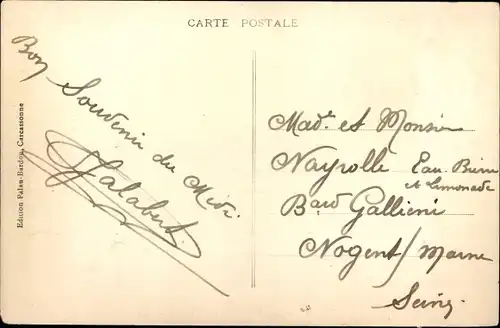 CARTE POSTALE
Bon Souvenir du Midi
Jalabert
Mad.e et Monsieur
Nayrolle Eau. Bière
et Limonade
Bard Gallieni
Nogent / Marne
Seine
Edition Palau-Bardou, Carcassonne